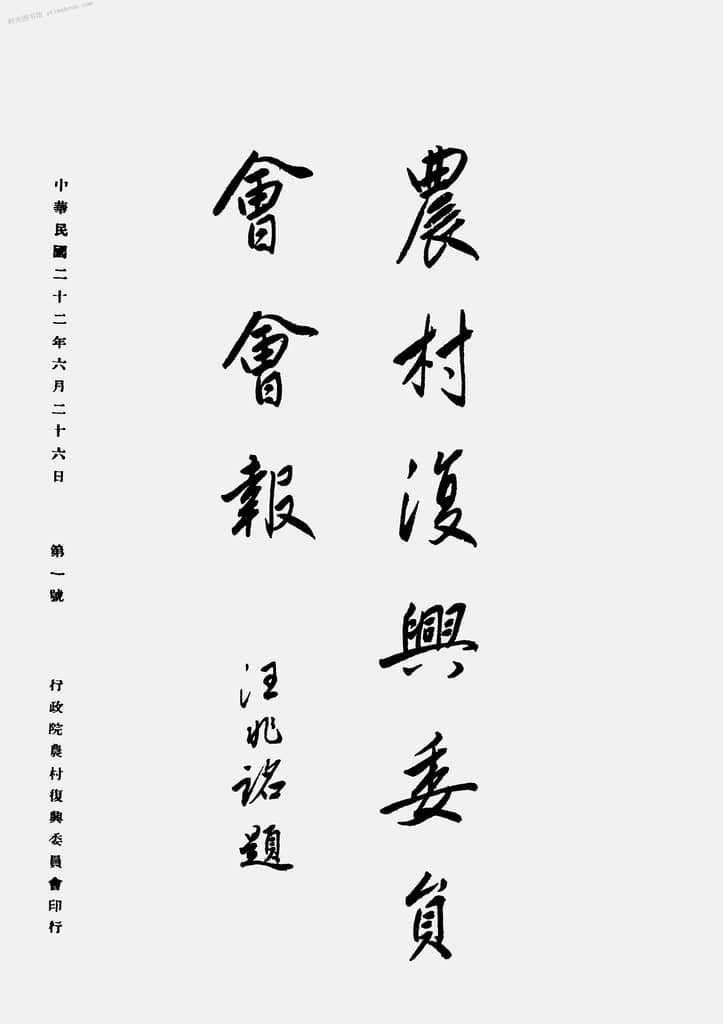 農村復興委員
會會報
汪兆銘題
中華民國二十二年六月二十六日　第一號　行政院農村復興委員會印行